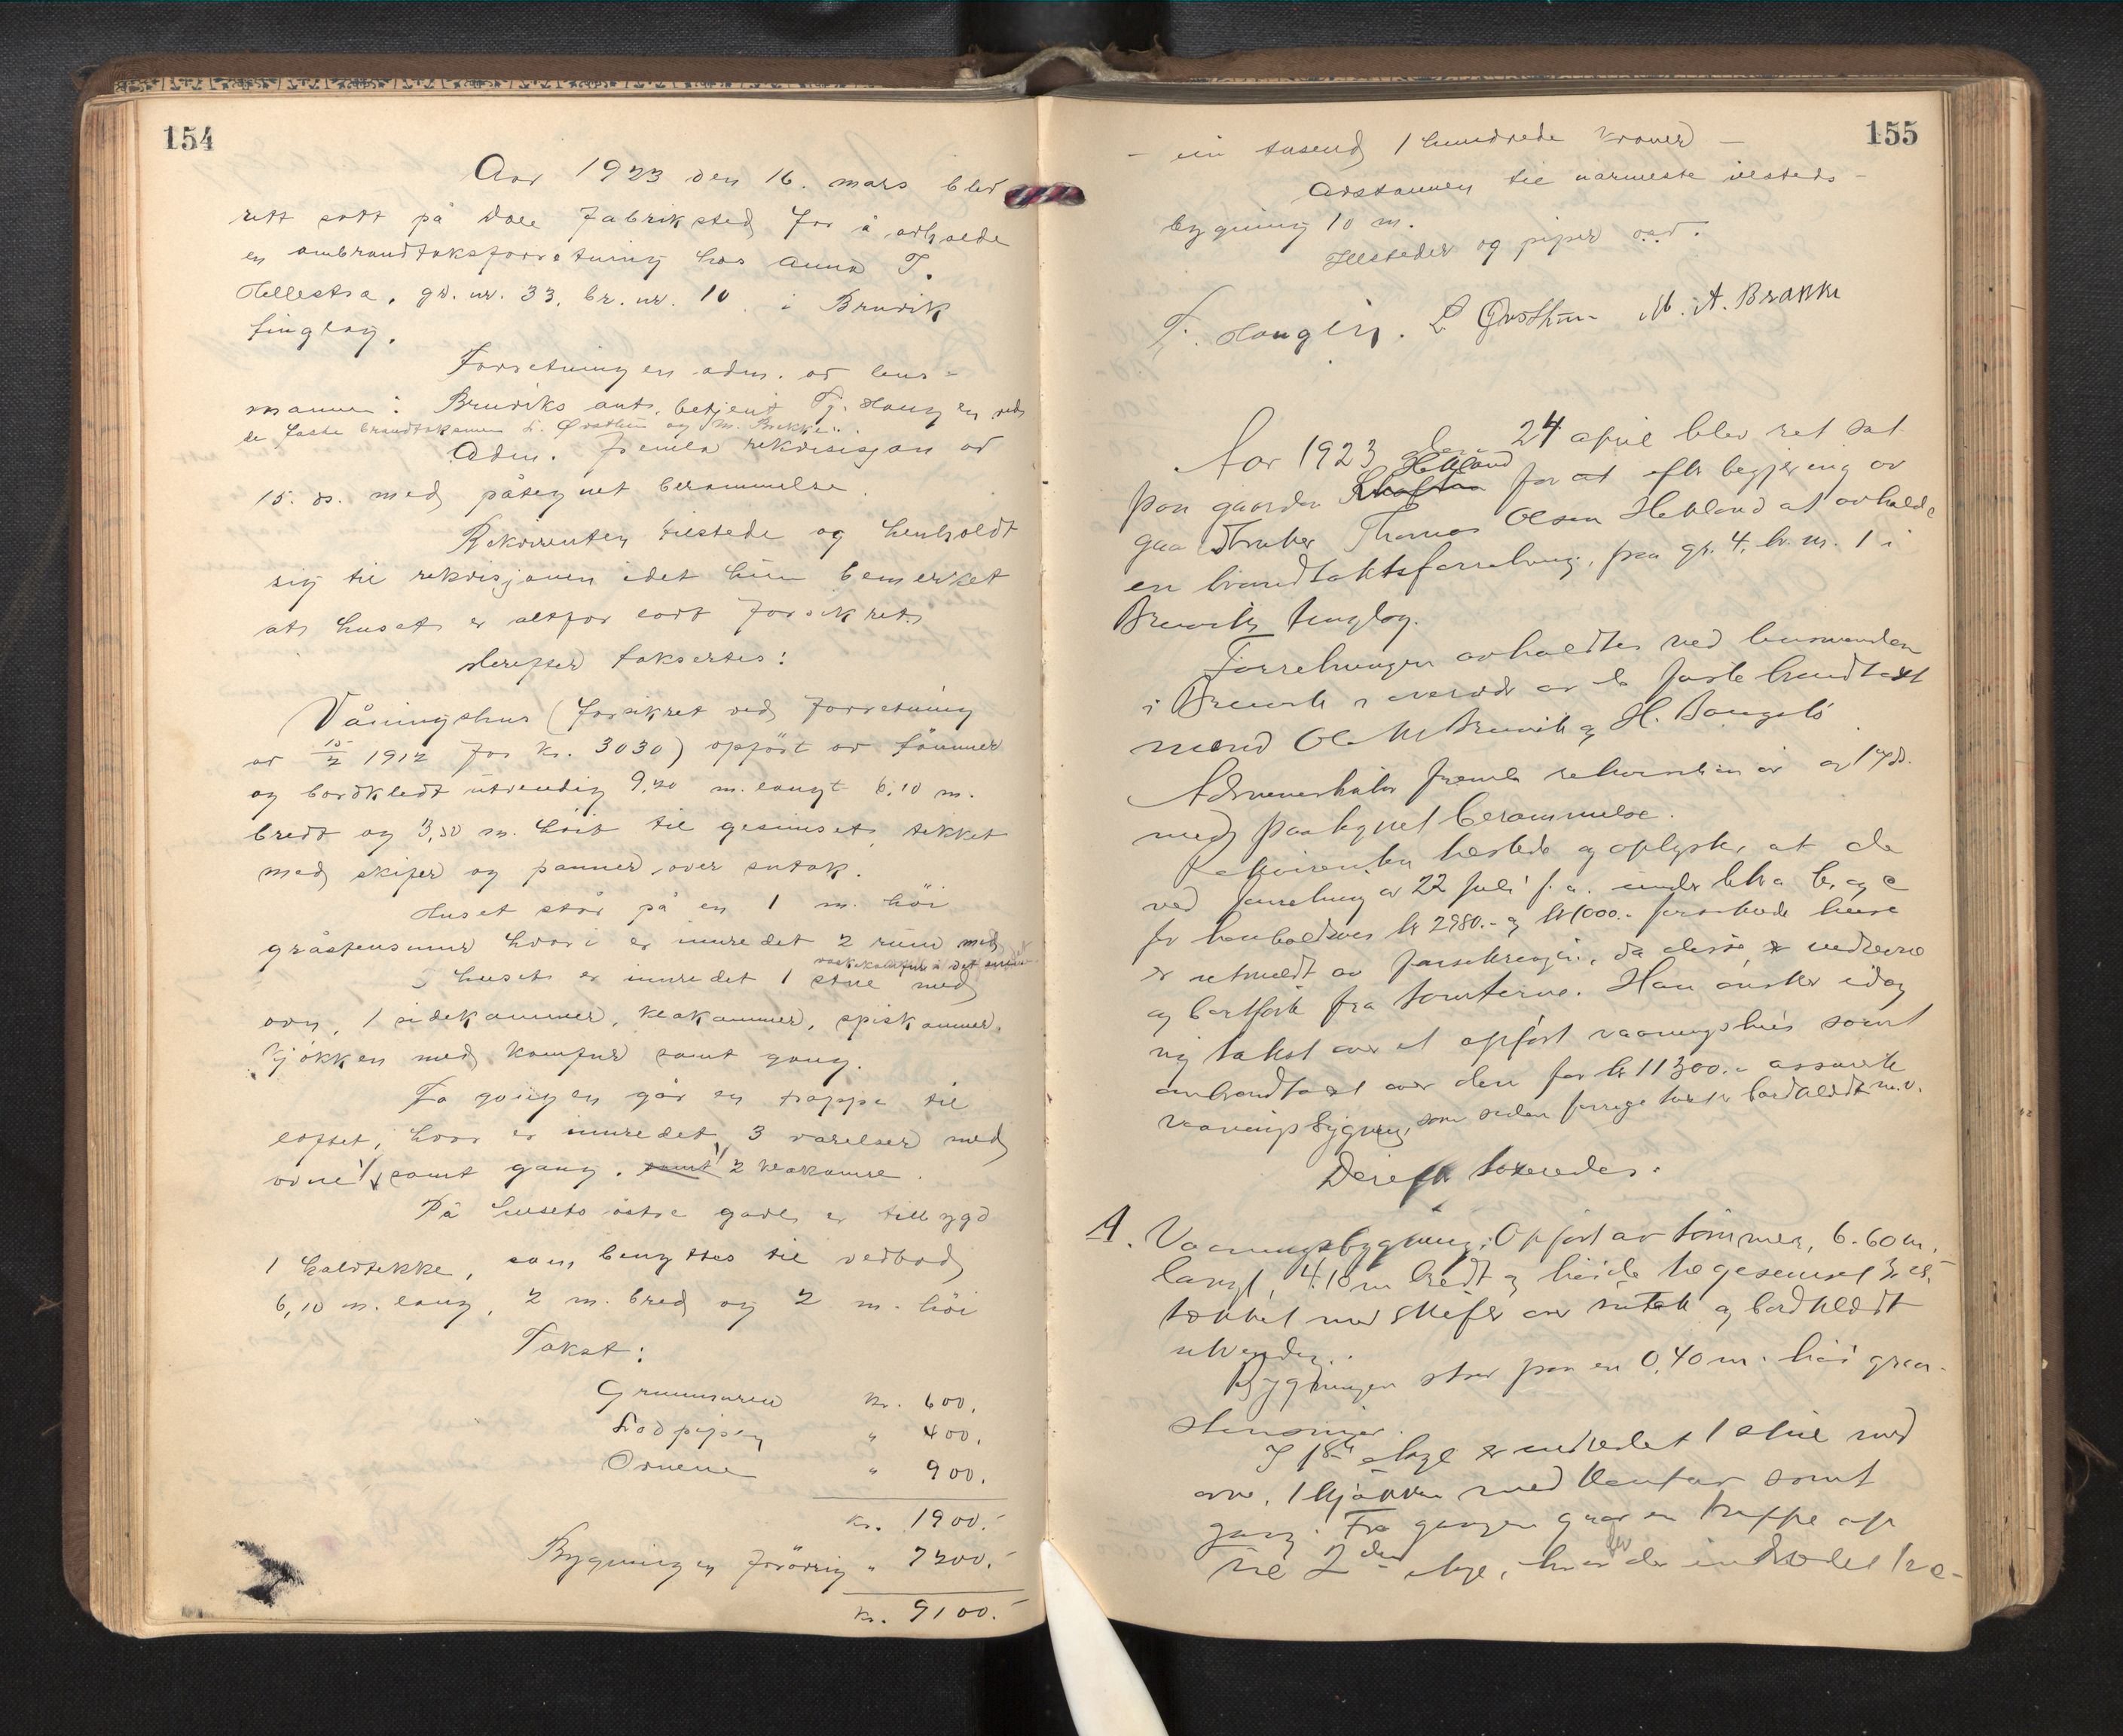 154
Aar 1923 den 16. mars blev
rett satt på Dale Fabriksted for å avholde
en ombrandtaksforretning hos Anna T.
Hellestra, gr. nr. 33, br. nr. 10 i Bruvik
tinglag.
Forretningen adm. av lens-
mannen i Bruviks aut. betjent Tj. Haugen ved
de faste brandtaksmenn L. Øvsthun og M. Brekke.
Adm. fremla rekvisisjon av
15. ds. med påtegnet berammelse.
Rekvirenten tilstede og henholdt
sig til rekvisjonen idet hun bemerket
at huset er altfor lavt forsikret.
Derefter taksertes:
Våningshus (forsikret ved forretning
av 15/2 1912 for kr. 3030) opført av tømmer
og bordkledt utvendig 9,20 m. langt 6,10 m.
bredt og 3,50 m. høit til gesimset, tekket
med skifer og panner over sutak.
Huset står på en 1 m. høi
gråstensmur hvori er innredet 2 rum med
vaskekomfur i det
I huset er innredet 1 stue med
ovn, 1 sidekammer, klekammer, spiskammer,
kjøkken med komfur samt gang.
Fra gangen går en trappe til
loftet, hvor er innredet 3 værelser med
ovne samt gang. samt 2 klekamre.
På husets østre gavl er tilbygd
1 halvtekke, som benyttes til vedbod,
6,10 m. lang, 2 m. bred og 2 m. høi
Takst:
Grunmuren kr. 600.
Lodpipen " 400.
Ovnene " 900.
kr. 1900.-
Bygningen forøvrig " 7200.-
kr. 9100.-
155
- ein tusend 1 hundrede kroner -
Avstannen til nærmeste ilsteds-
bygning 10 m.
Ildsteder og piper
T. Haugen. L Øvsthun M. A. Brekke
Aar 1923 den 24 april blev ret sat
paa gaarden Helland for at efter begjæring av
gaardbruker Thomas Olsen Helland at avholde
en brandtakstforretning, paa gr. 4, br. nr. 1 i
Bruviks tinglag.
Forretningen avholdtes ved lensmanden
i Bruvik i overvær av de faste brandtakst
mænd Ole M Bruvik og H. Daugstø
Administrator fremla rekvisition av 17 ds.
med paategnet berammelse.
Rekvirenten tilstede og oplyste at de
ved forretning av 22 juli f. a. under litra b. og c
for henholdsvis kr 2980.- og kr 1000.- forsikrede huse
er utmeldt av forsikringen, da disse er nedrevne
og bortført fra tomterne. Han ønsker idag
ny takst over et opført vaaningshus samt
ombrandtakst over den for kr 11300.- assurerte
vaaningsbygning, som siden forrige takst bordklædt m.v.
Derefter taxeredes:
A. Vaaningsbygning: Opført av tømmer, 6.60 m.
langt, 4.10 m bredt og høide til gesimset
tækket med skifer over sutak og bordklædt
utvendig.
Bygningen staar paa en 0,40 m. høi graa-
stensmur.
I 1ste etage er indredet 1 stue med
ovn, 1 kjøkken med komfur samt
gang. Fra gangen gaar en trappe op
til 2den etage, hvor der er indredet